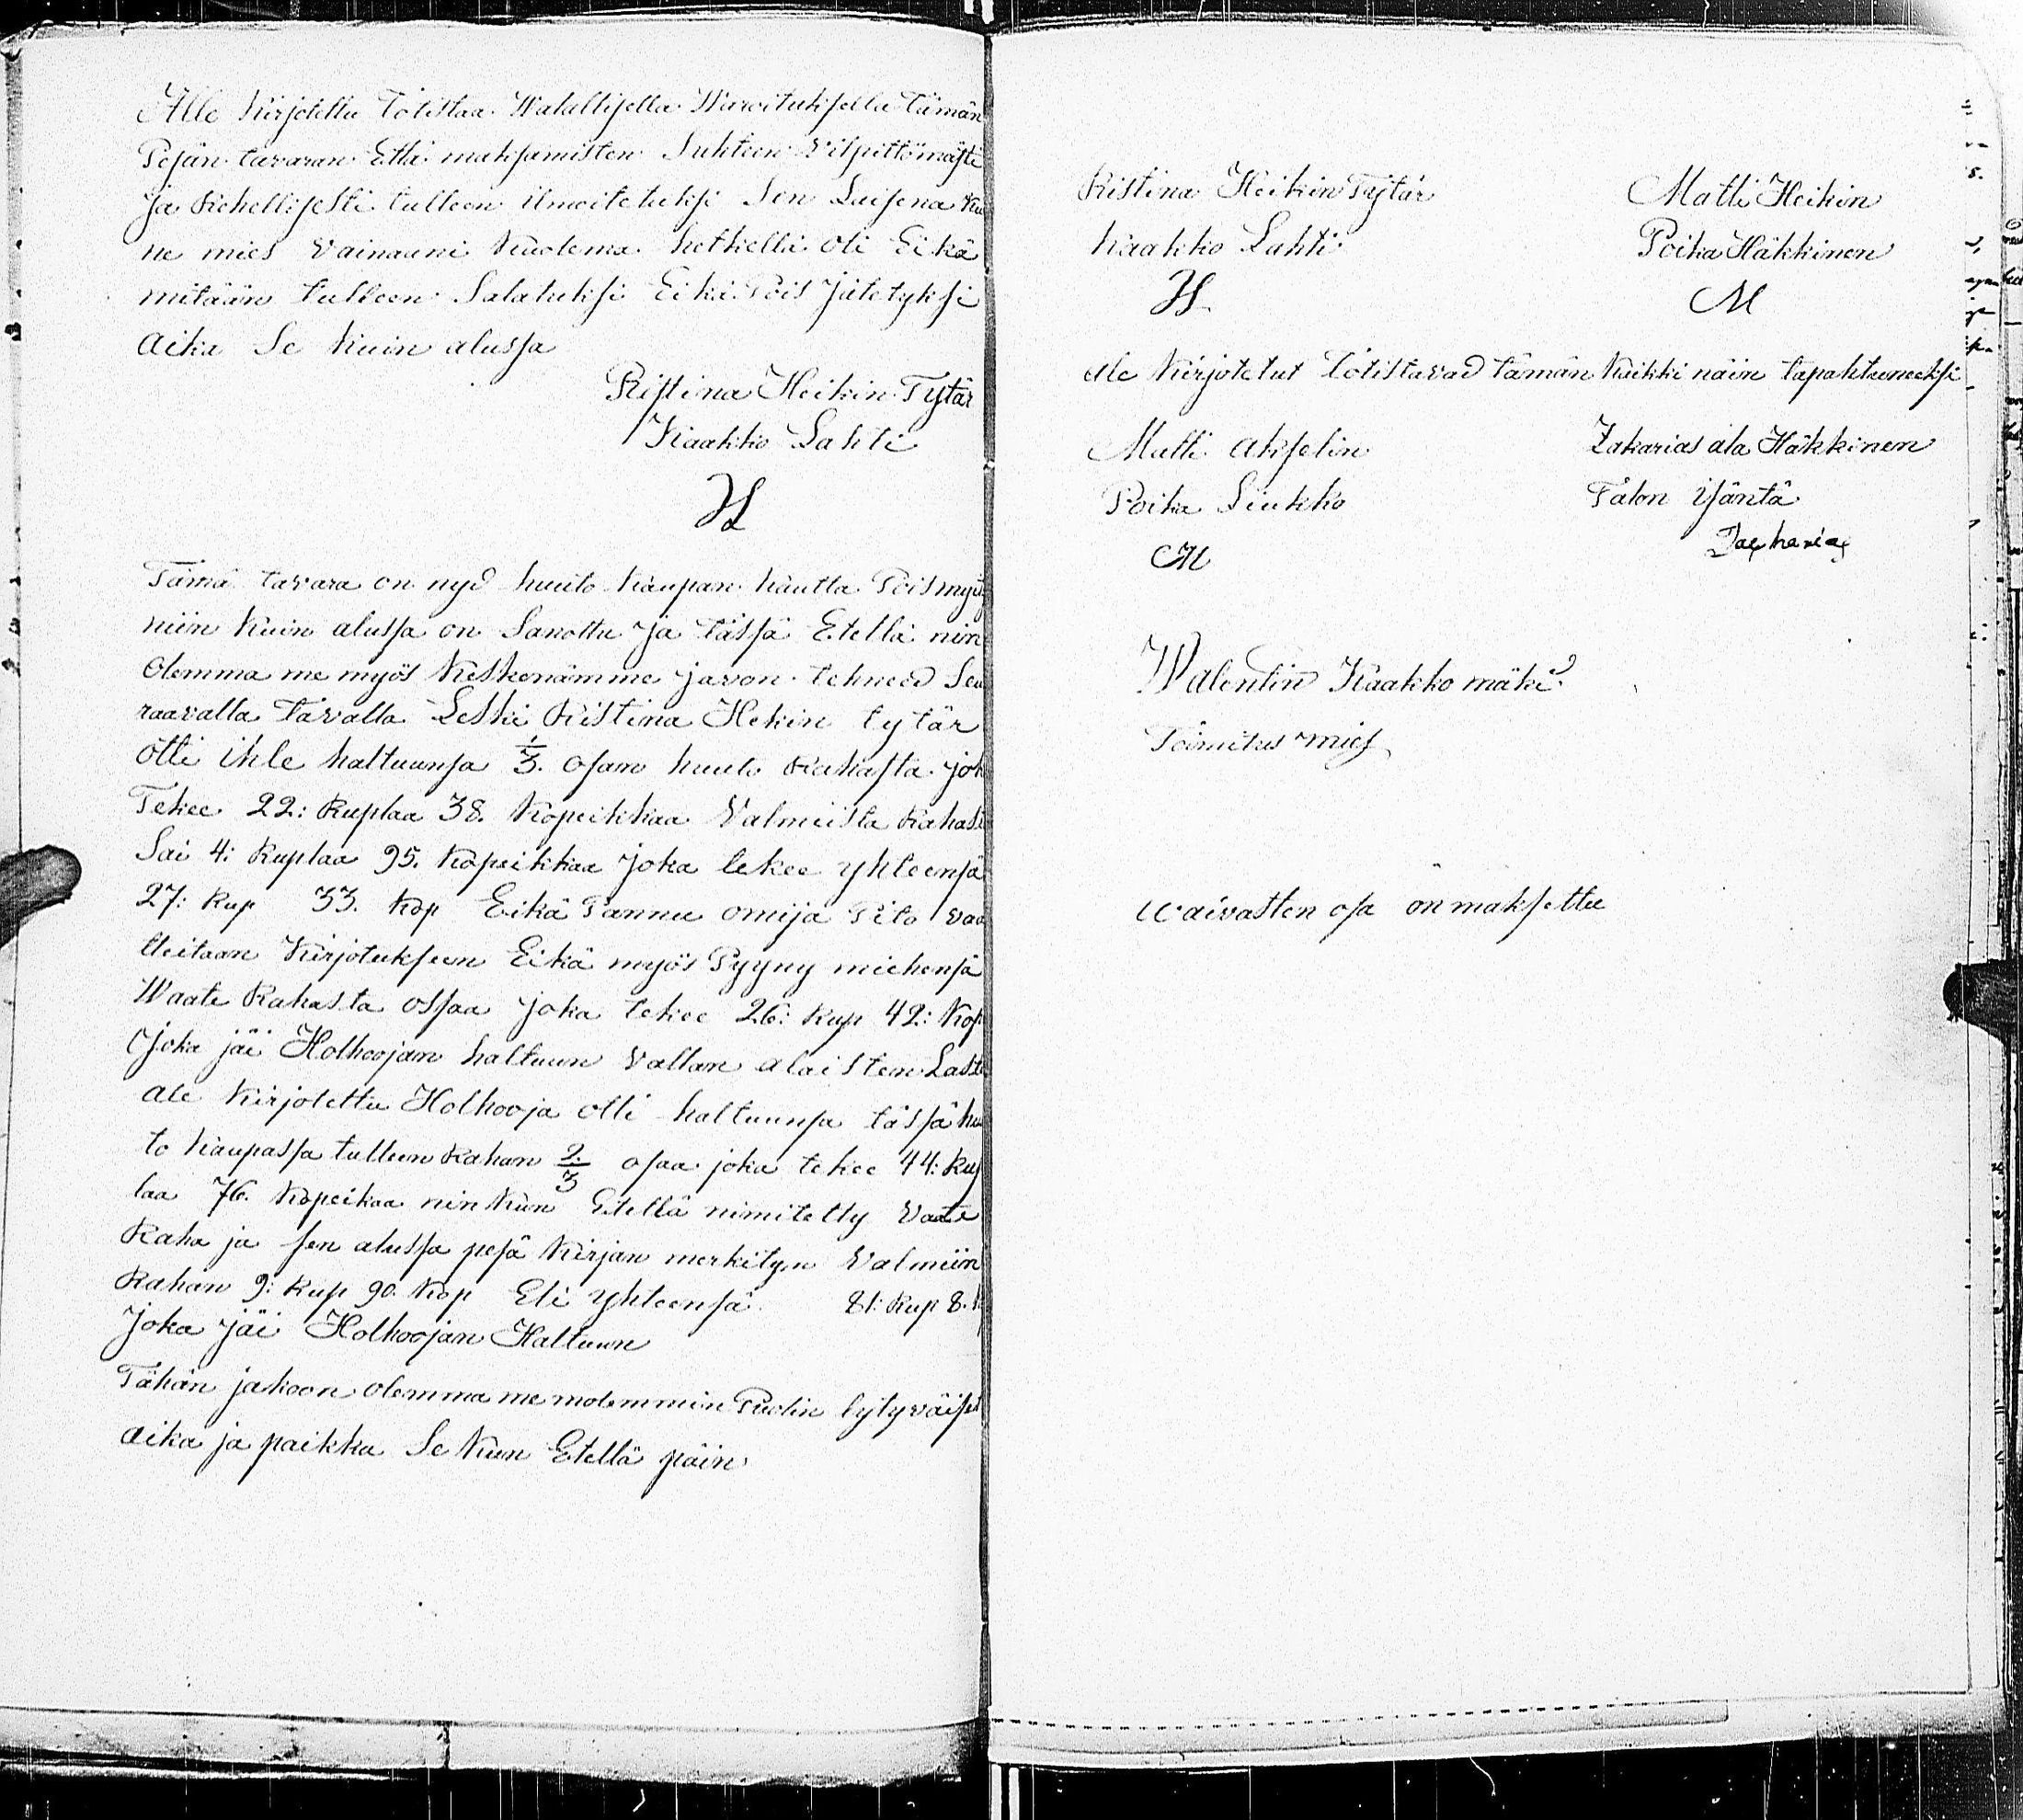 Alle Kirjotettu Totistaa Walallisella Waroituksella tämän
Pesän tavaran Että maksamisten Suhteen Vilpittömästi
ja Rehellisesti tulleen ilmoitetuksi Sen Laisena Ku
ne mies Vainaani Kuoleman hetkellä oli Eikä
mitään tulleen Salatuksi Eikä Pois Jätetyksi
Aika Se Kuin alussa
Ristina Heikin Tytär
Kaakko Lahti
H
Tämä tavara on nyd huuto kaupan kautta Pois myyty
niin Kuin alussa on Sanottu ja tässä Etellä nin
Olemma me myös Keskenämme javon tehneed Seu
raavalla tavalla Leski Ristina Hekin tytär
otti ihle haltuunsa 1/3. osan huuto Rahasta jok
Tekee 22: Ruplaa 38. Kopeikkaa Valmiista Rahast
Sai 4: Ruplaa 95. Kopeikkaa joka tekee yhteensä
27: Rup 33. Kop Eikä Pannu omija Pito vaa
tteitaan Kirjotukseen Eikä myös Pyyny miehensä
Waate Rahasta ossaa joka tekee 26: Rup 42: Kop
Joka jäi Holhoojan haltuun Vallan alaisten Laste
ale Kirjotettu Holhooja otti haltuunsa tässä huu
to kaupassa tulleen Rahan 2/3 osaa joka tekee 44: Rup
laa 76. Kopeikaa nin Kun Etellä nimitetty Vaate
Raha ja sen alussa pesä Kirjan merkityn Valmiin
Rahan 9: Rup 90. Kop Eli yhteensä 81: Rup 8. K
Joka jäi Holhoojan Haltuun
Tähän jakoon olemma me molemmin Puolin tytyväiset
aika ja paikka Se Kun Etellä päin
Ristina Heikin Tytär
Kaakko Lahti
H
Matti Heikin
Poika Häkkinen
M
ale Kirjotetut totistavad tämän Kaikki näin tapahtuneeksi
Matti Akselin
Poika Liukko
M
Zakarias ala Häkkinen
Talon isäntä
Zacharias
Walentin Kaakko mäki
Toimitus mies
waivasten osa on maksettu